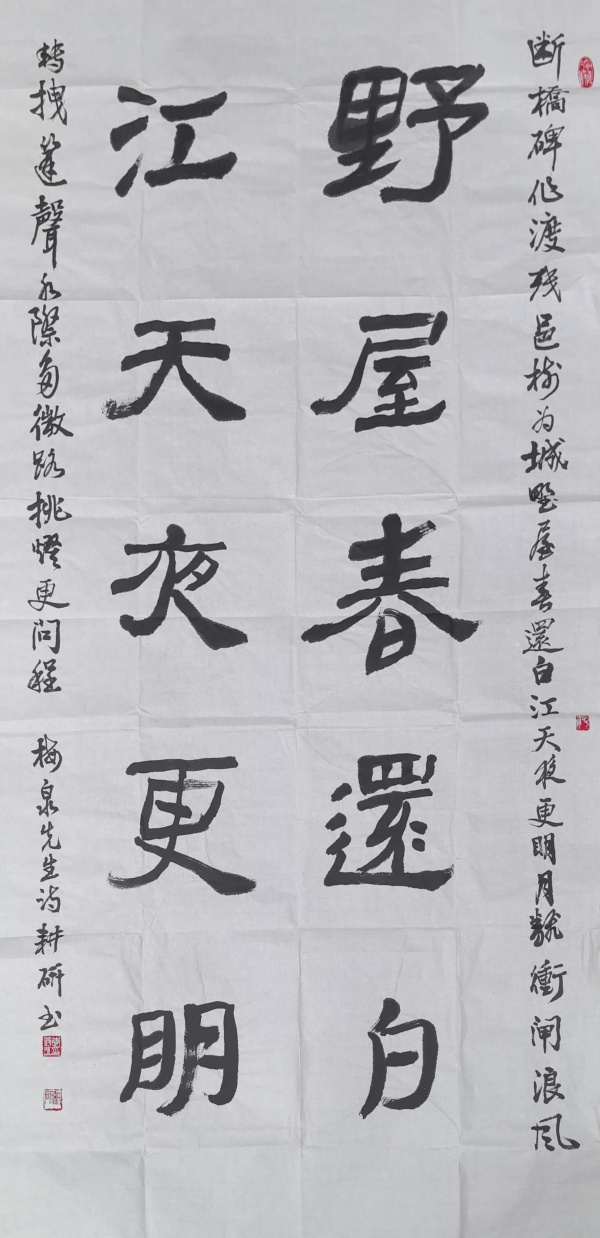 断橋碑作渡残邑樹为城野屋春還白江天夜更明月衝闸浪风
野屋春還白
江天夜更明
轉拽篷聲水際多微路挑燈更问程 梅泉先生诗 耕研书